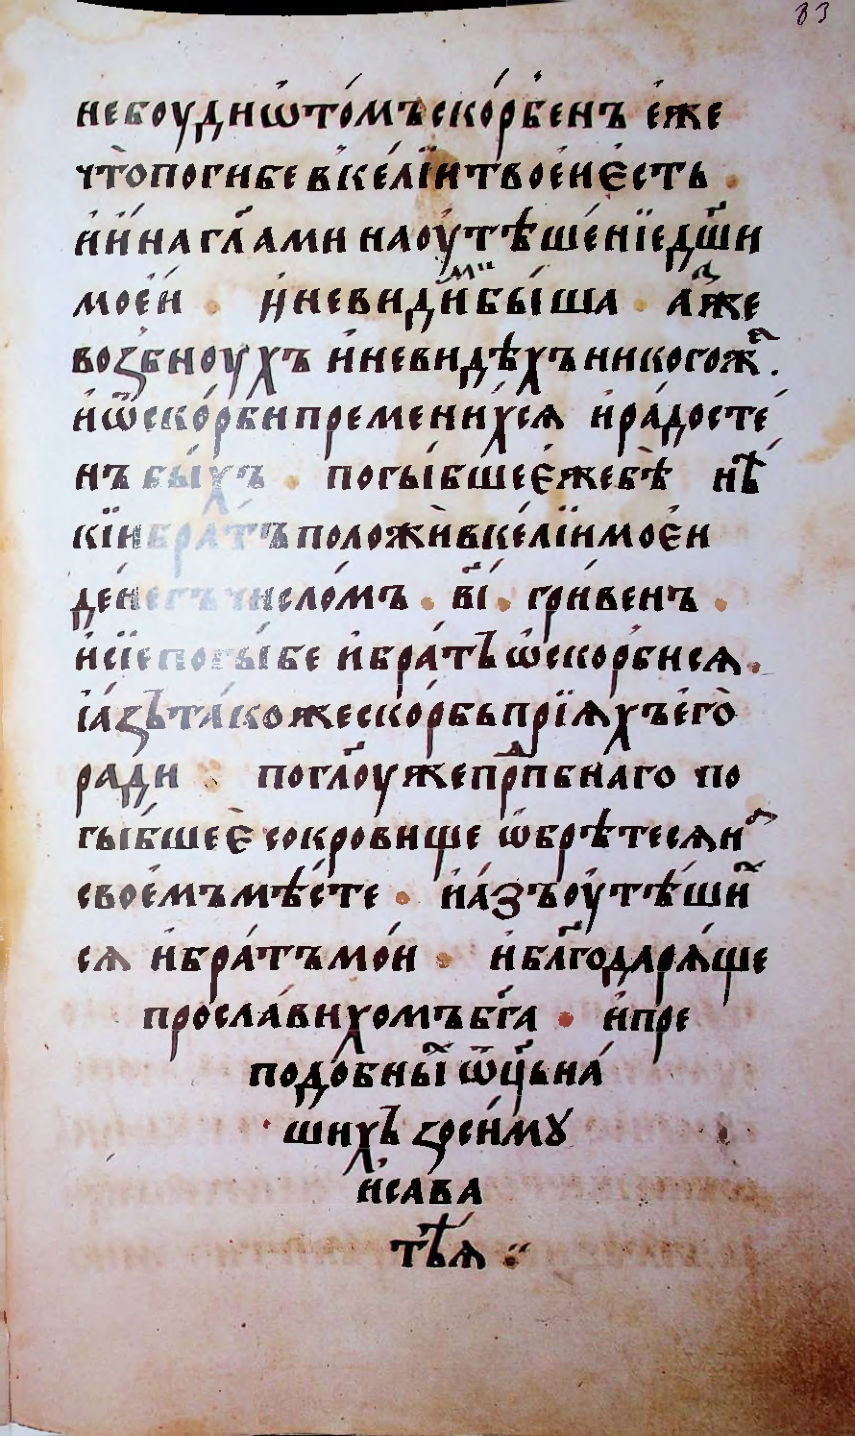 83
небоуди ѡто́мъ ско́рбенъ е́же
что̀ погибе в̾ке́лїи твоеи̂ є҆сть .
и҆ и҆́на гл҃а ми на оу҆тѣше́нїе дш҃и
моеи҆ . и҆ невиди́мⷨ бы́ша . а҆́зⷤ же
возбноухъ и҆ невидѣхъ никогоже .
и҆ ѿ ско́рби премени́хся и҆ ра́досте́
нъ бы́хъ . погы́бшее є҆же бѣ̀ нѣ́
кїи бра́тъ положѝ в ке́лїи моеи
де́негъ число́мъ . в҃і . гри́венъ .
и҆ сїе погы́бе и҆ бра́тъ ѡскорби ся .
і҆а́зъ та́коже ско́рбь прїяхъ е҆го̀
ради по гл҃оу же прпⷣбнаго по
гы́бшее є҆ сокровище ѡбрѣтеся нⷶ
своемъ мѣ́сте . и҆ а́зъ оу҆тѣ́ши
ся и҆ бра́тъ мои́ . и҆ бл҃годаря́ще
просла́вихомъ бг҃а . и҆ пре
подо́бныⷯ ѿц҃ь на́
шихъ зоси́мꙋ
и҆ сава
тѣ́я ::